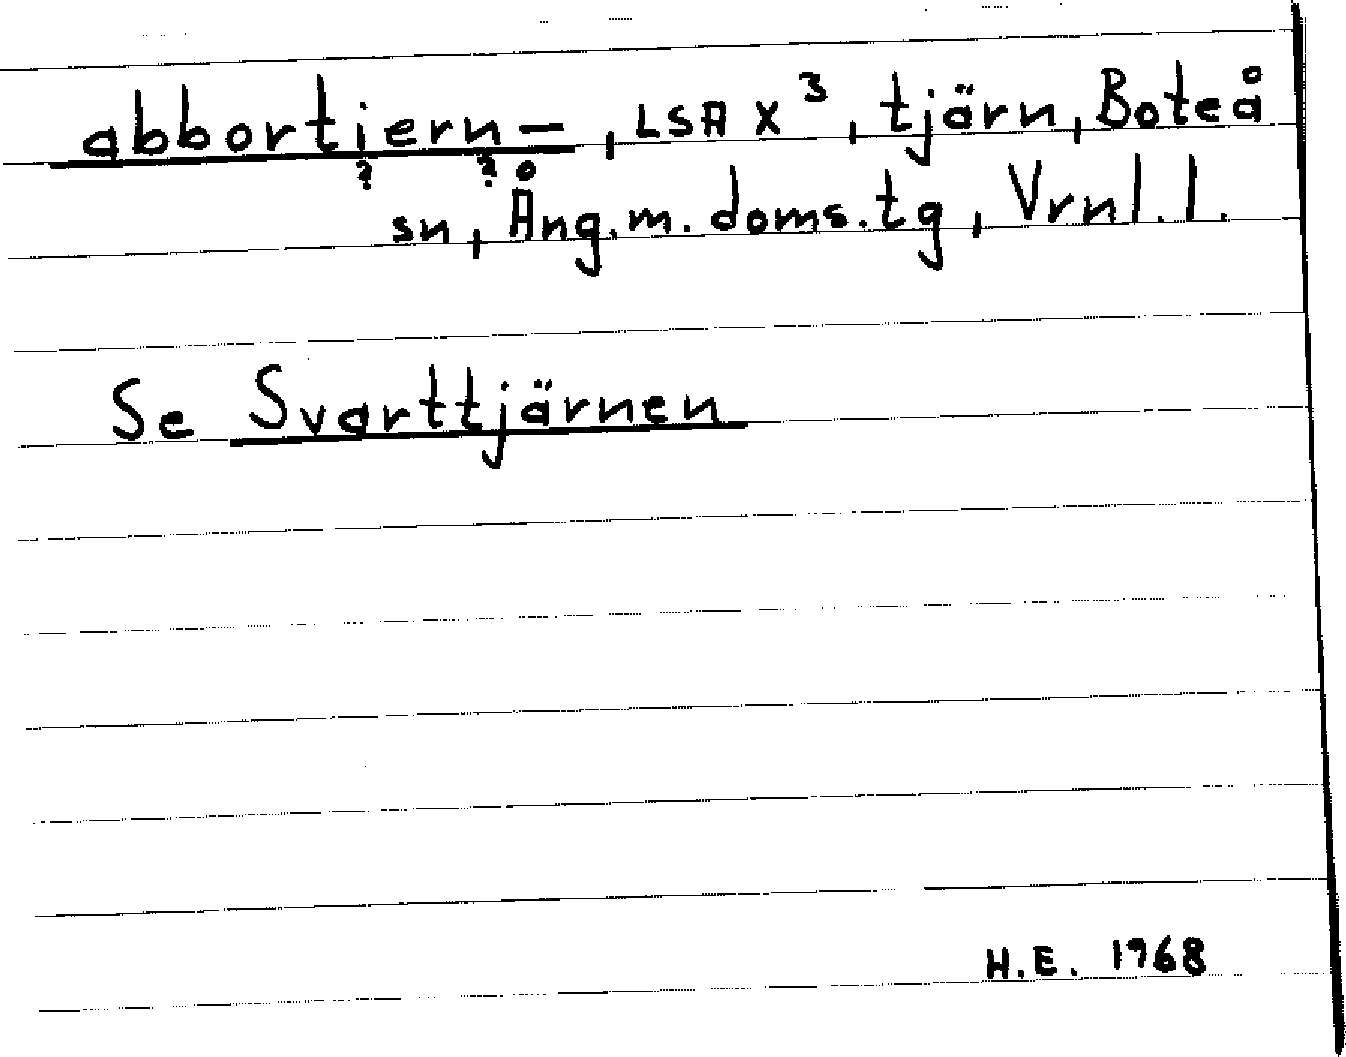 abbortiern-, LSA X 3, tjärn, Boteå
? ?
sn, Ång.m. doms.tg, Vrnl.l.
Se Svarttjärnen
H.E. 1968